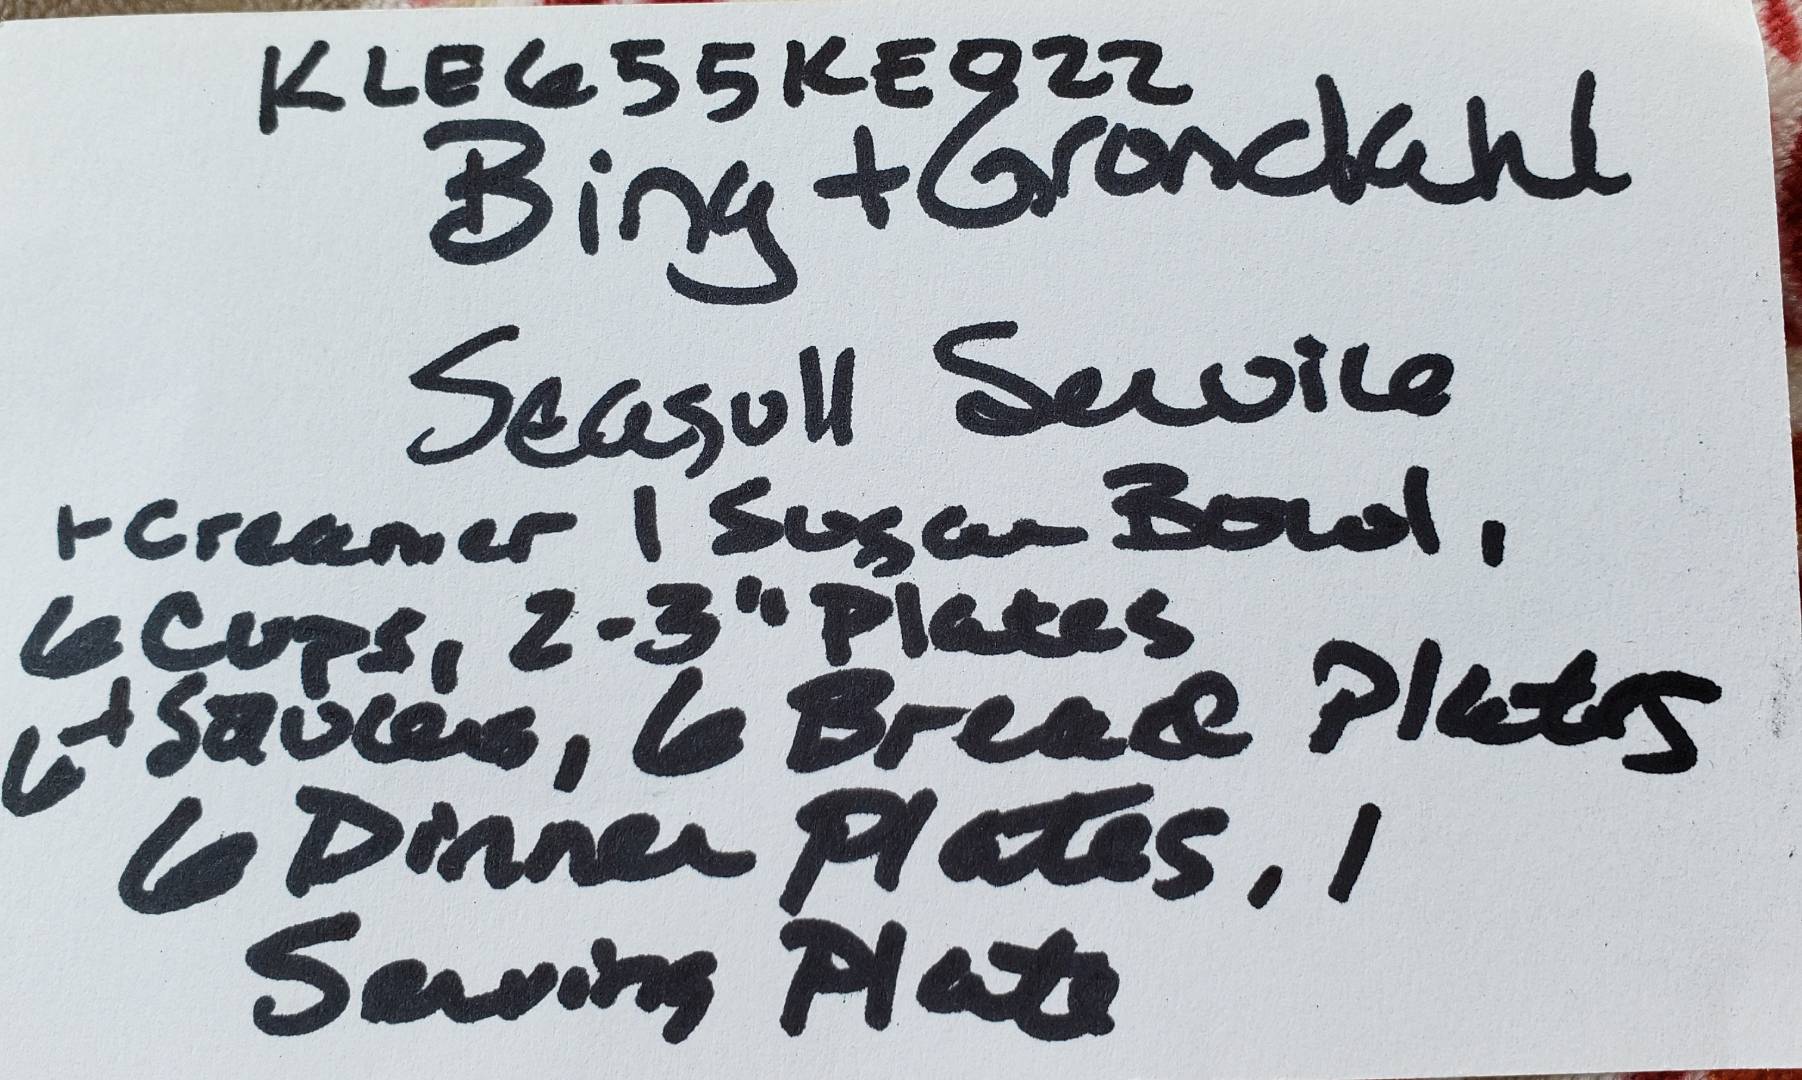 KLE655KE022
Bing + Grondahl
Seagull Service
+ Creamer 1 Sugar Bowl,
6 Cups, 2-3" Plates
6 + Saucers, 6 Bread Plates
6 Dinner Plates, 1
Serving Plate